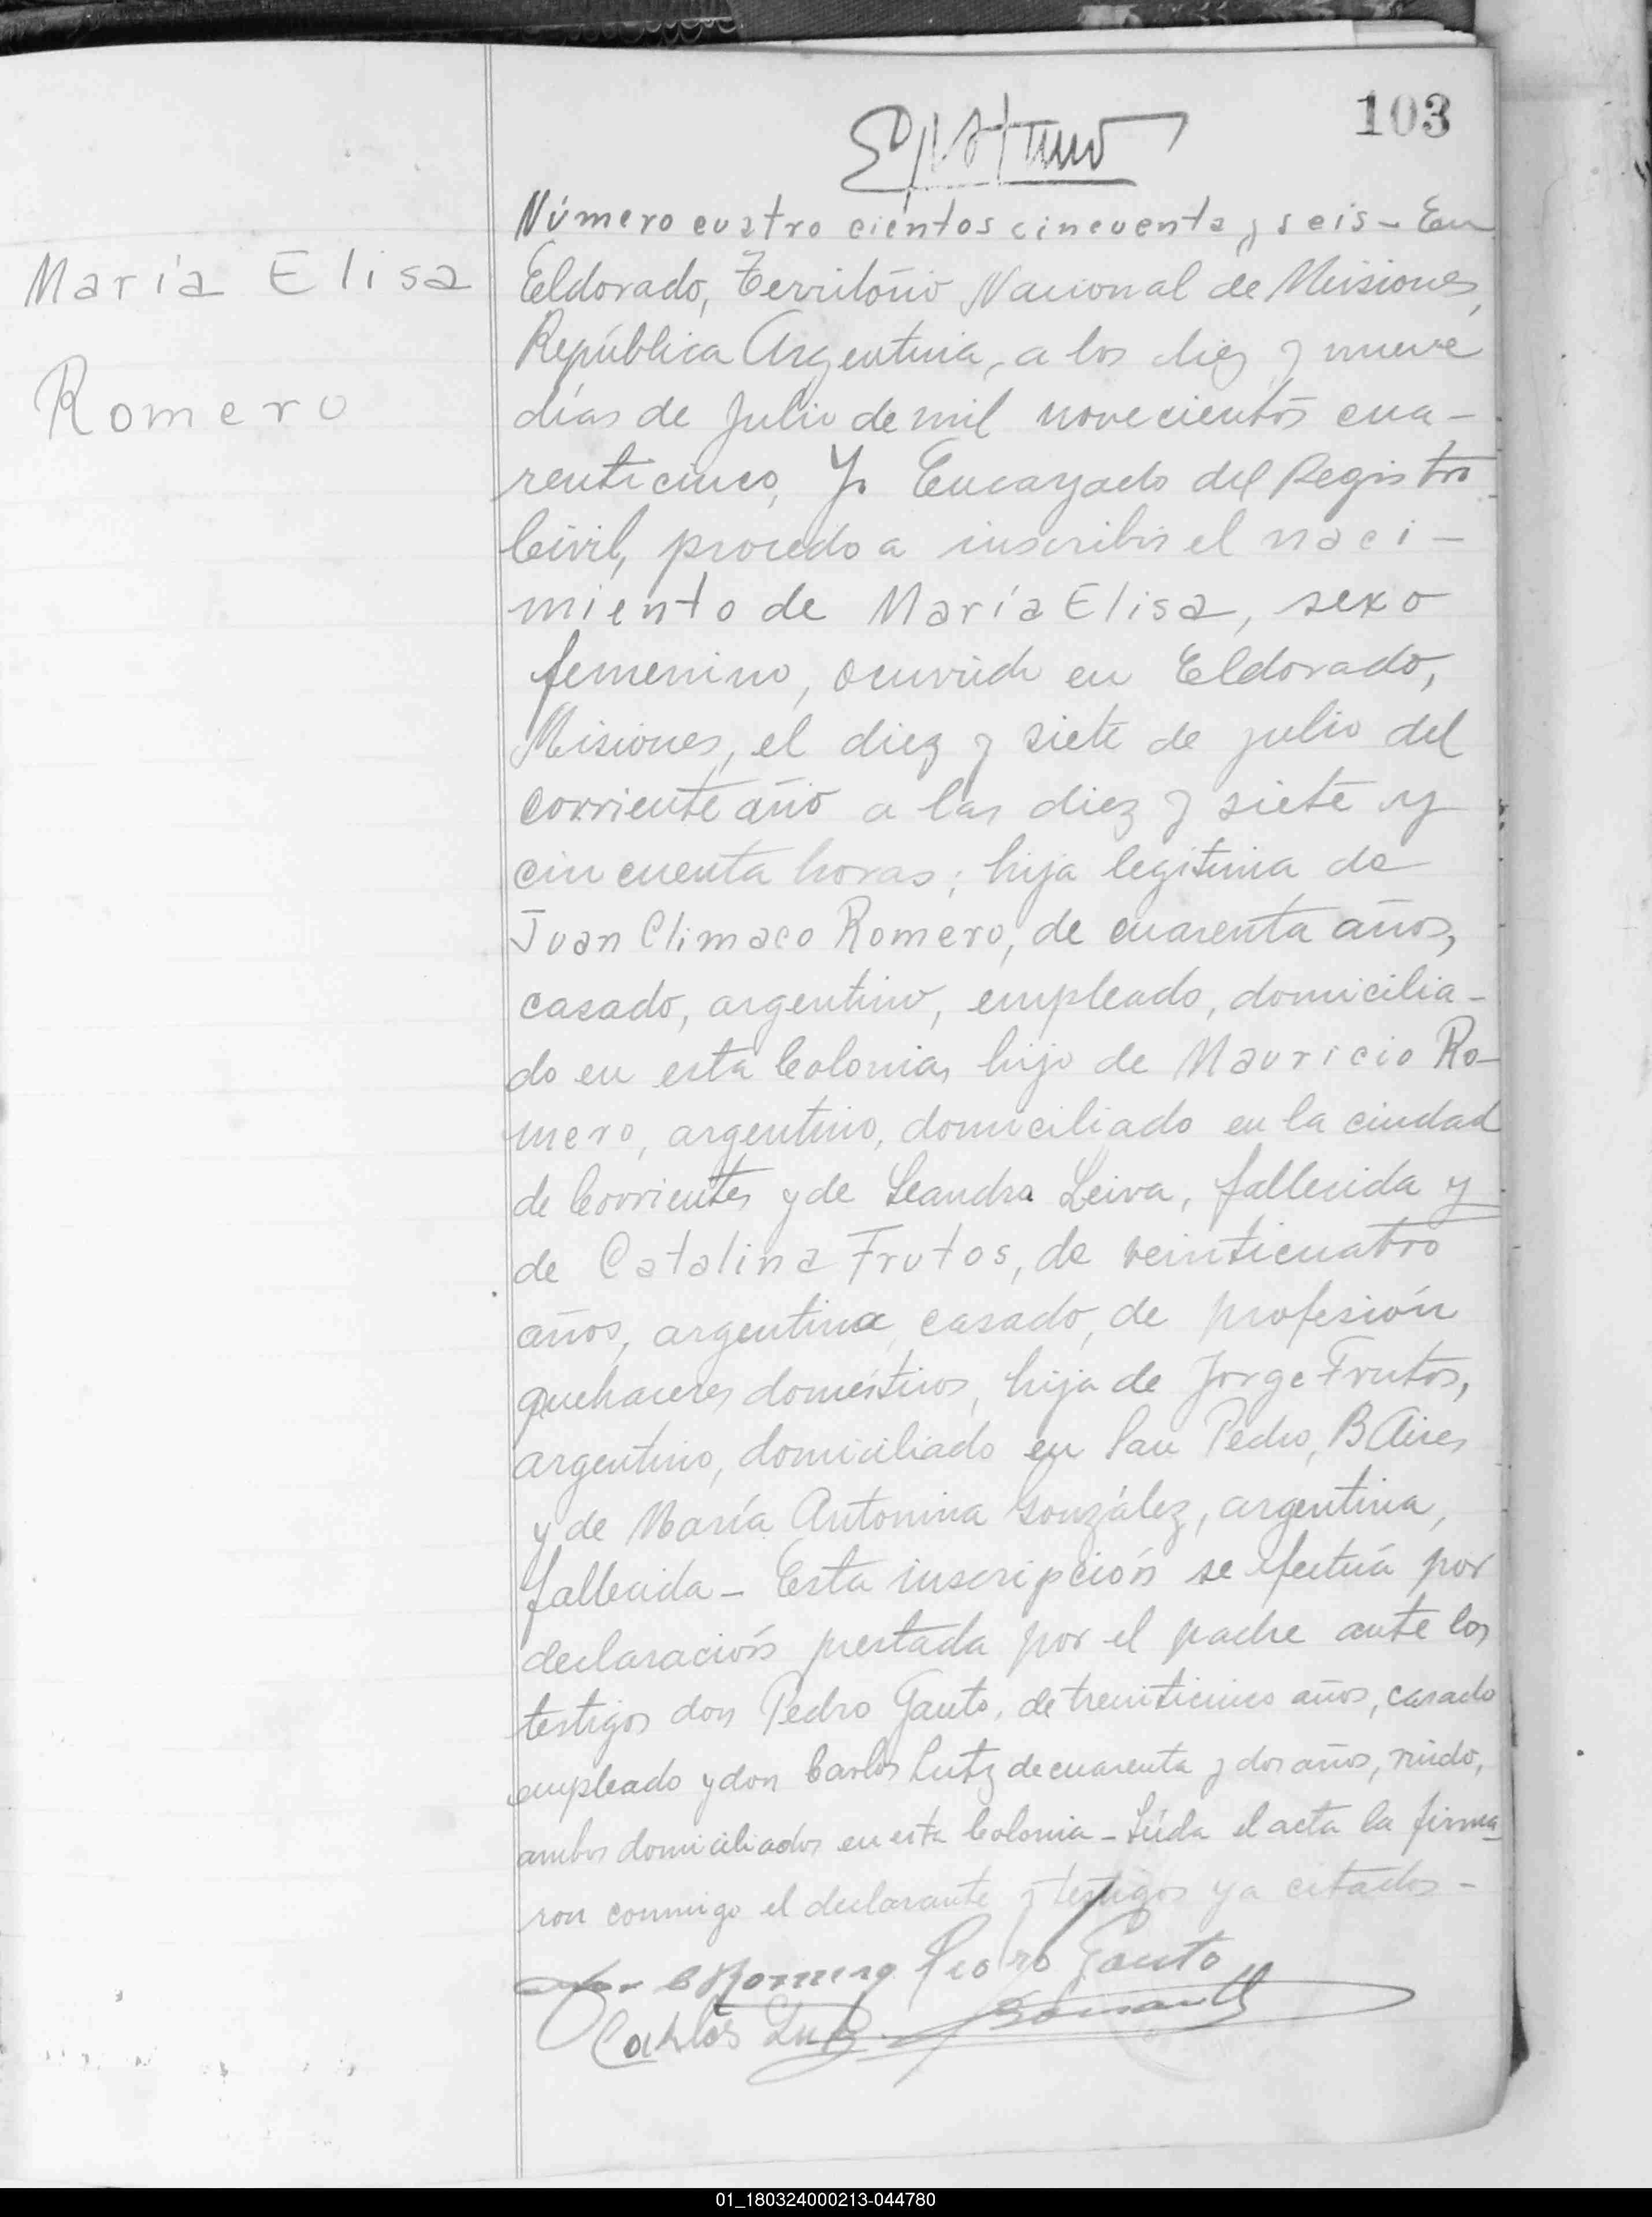 103
María Elisa
Romero
Número cuatro cientos cincuenta y seis - En
Eldorado, Territorio Nacional de Misiones,
República Argentina, a los diez y nueve
días de Julio de mil novecientos cua-
renticinco, Yo Encargado del Registro
Civil, procedo a inscribir el naci-
miento de María Elisa, sexo
femenino, ocurrido en Eldorado,
Misiones, el diez y siete de julio del
corriente año a las diez y siete y
cincuenta horas; hija legitima de
Juan Climaco Romero, de cuarenta años,
casado, argentino, empleado, domicilia-
do en esta Colonia, hijo de Mauricio Ro-
mero, argentino, domiciliado en la ciudad
de Corrientes y de Leandra Leiva, fallecida y
de Catalina Frutos, de veinticuatro
años, argentina, casado, de profesión
quehaceres domésticos, hija de Jorge Frutos,
argentino, domiciliado en San Pedro, B Aires
y de María Antonina González, argentina,
fallecida - Esta inscripción se efectúa por
declaración prestada por el padre ante los
testigos don Pedro Gauto, de treinticinco años, casado
empleado y don Carlos Lutz de cuarenta y dos años, viudo,
ambos domiciliados en esta Colonia - Leída el acta la firma-
ron conmigo el declarante y testigos ya citados -
Romero Pedro Gauto
Carlos Lutz
01_180324000213-044780